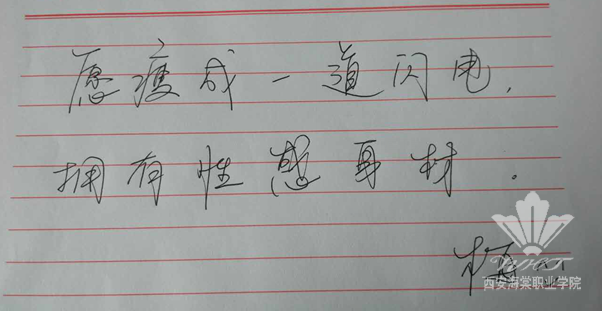 愿瘦成一道闪电，
拥有性感身材.
西安海棠职业学院